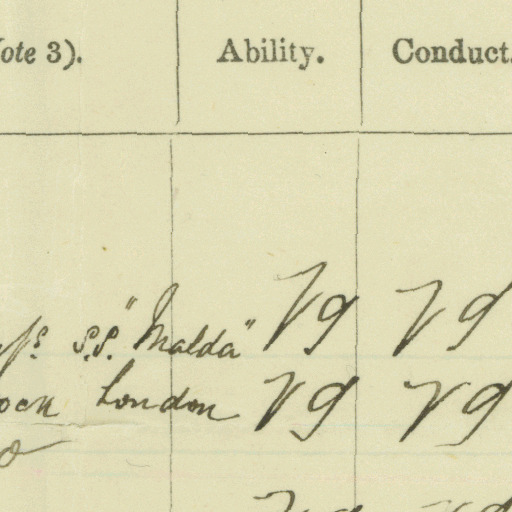 ote 3). Ability. Conduct.
S.S. "Malda" Vg Vg
ock London Vg Vg
o
Vg Vg